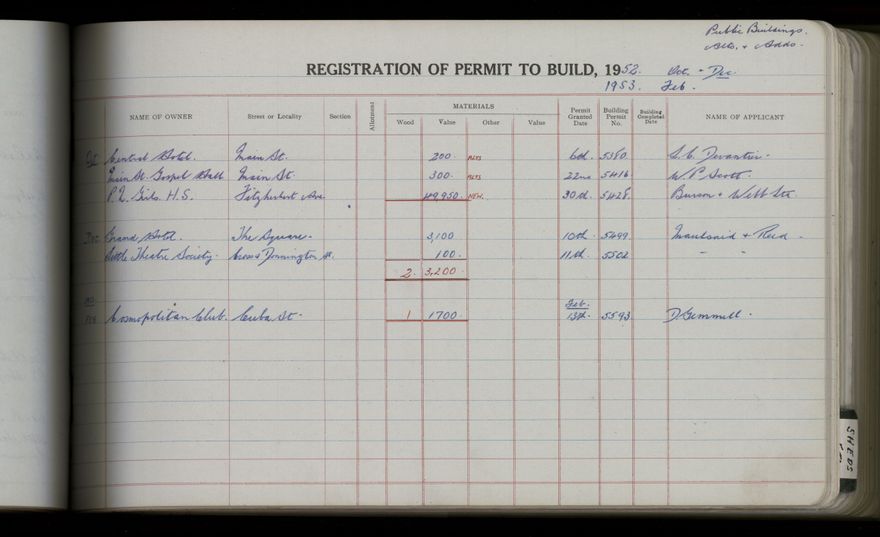 Public Buildings.
Alts. & Adds.
REGISTRATION OF PERMIT TO BUILD, 1952. Oct. - Dec
1953. Feb.
NAME OF OWNER Street or Locality Section Allotment MATERIALS Wood Value Other Value Permit Granted Date Building Permit No. Building Completed Date NAME OF APPLICANT
Oct Central Hotel. Main St. 200 ALTS 6th. 5380. Devantier.
Main St. Gospel Hall Main St. 300. ALTS 22nd 5416 W P Scott.
P.N. Girls. H.S. Fitzherbert Ave. 49,950. NEW. 30th. 5428. & Webb Ltd
Dec Grand Hotel. The Square. 3,100 10th. 5499 & Reid
Little Theatre Society. & Donnington St. 100. 11th. 5502 " "
2. 3,200.
1953 Feb.
FEB Cosmopolitan Club. Cuba St. 1 1700 13th. 5593 D Gemmell.
SHEDS